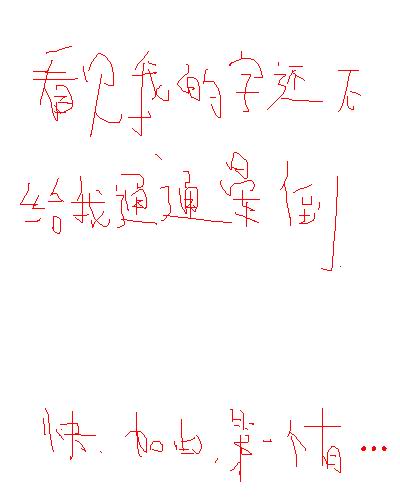 看见我的字还不
给我通通晕倒
快.加油.第一个有…